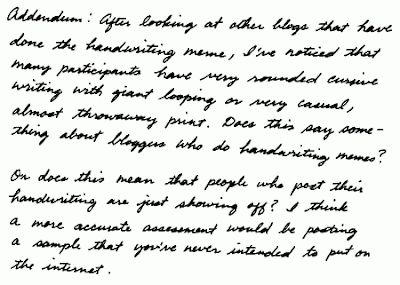 Addendum: After looking at other blogs that have
done the handwriting meme, I've noticed that
many participants have very rounded cursive
writing with giant looping or very casual,
almost throwaway print. Does this say some-
thing about bloggers who do handwriting memes?
Or does this mean that people who post their
handwriting are just showing off? I think
a more accurate assessment would be posting
a sample that you've never intended to put on
the internet.